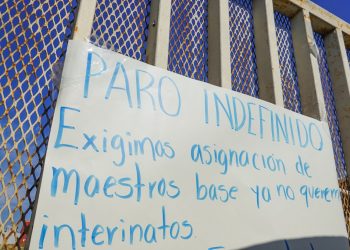 PARO INDEFINIDO
Exigimos asignación de
maestros base ya no queremo
interinatos